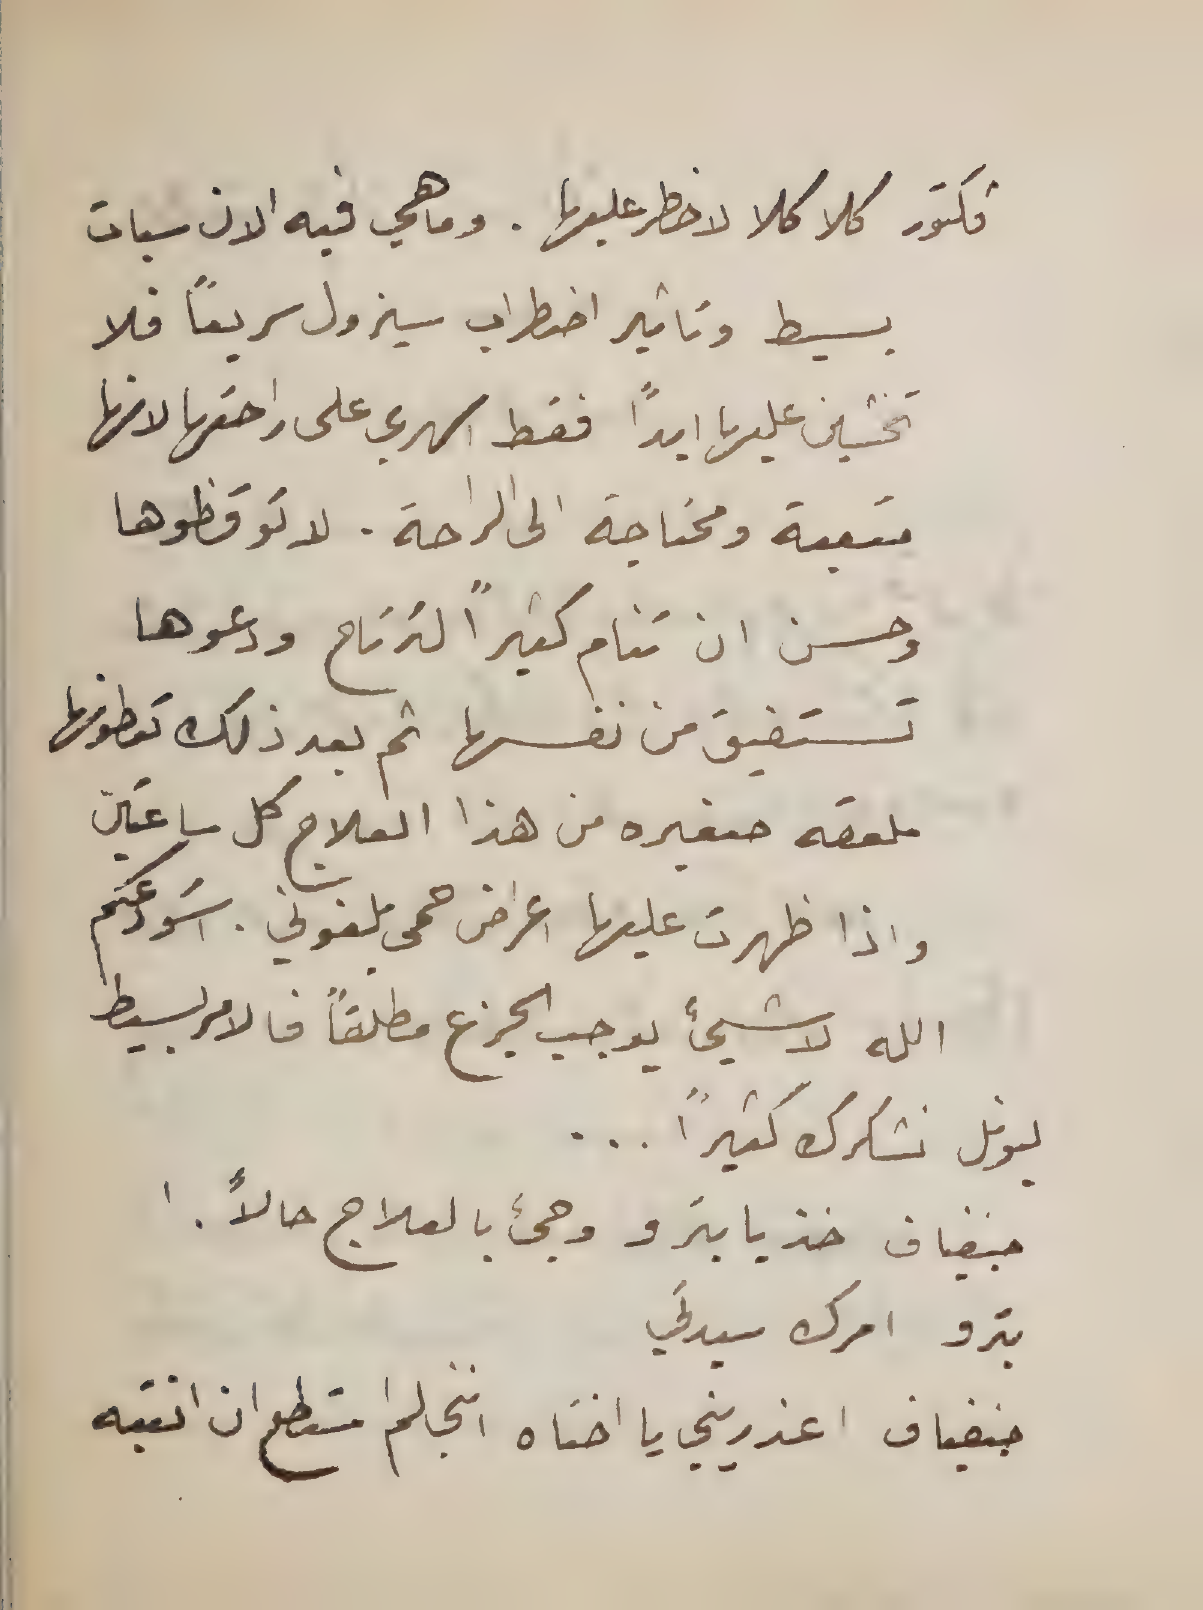 فكتور كلا كلا لا خطر عليها . وما هي فيه الان سبات
بسيط وتاثير اضطراب سيزول سريعاً فلا
تخشين عليها ابداً فقط اسهري على راحتها لانها
متعبة ومحتاجة الى الراحة . لا توقظوها
وحسن ان تنام كثيراً لترتاح ودعوها
تستفيق من نفسها ثم بعد ذلك تعطونها
ملعقه صغيره من هذا العلاج كل ساعتين
واذا ظهرت عليها اعراض حمى بلغوني . استودعكم
الله لا شيئ يوجب الجزع مطلقاً فالامر بسيط
ليونل نشكرك كثيراً ...
جنفياف خذ يا بترو وجئ بالعلاج حالاً . ا
بترو امرك سيدتي
جنفياف اعذريني يا اختاه انني لم استطع ان انتبه